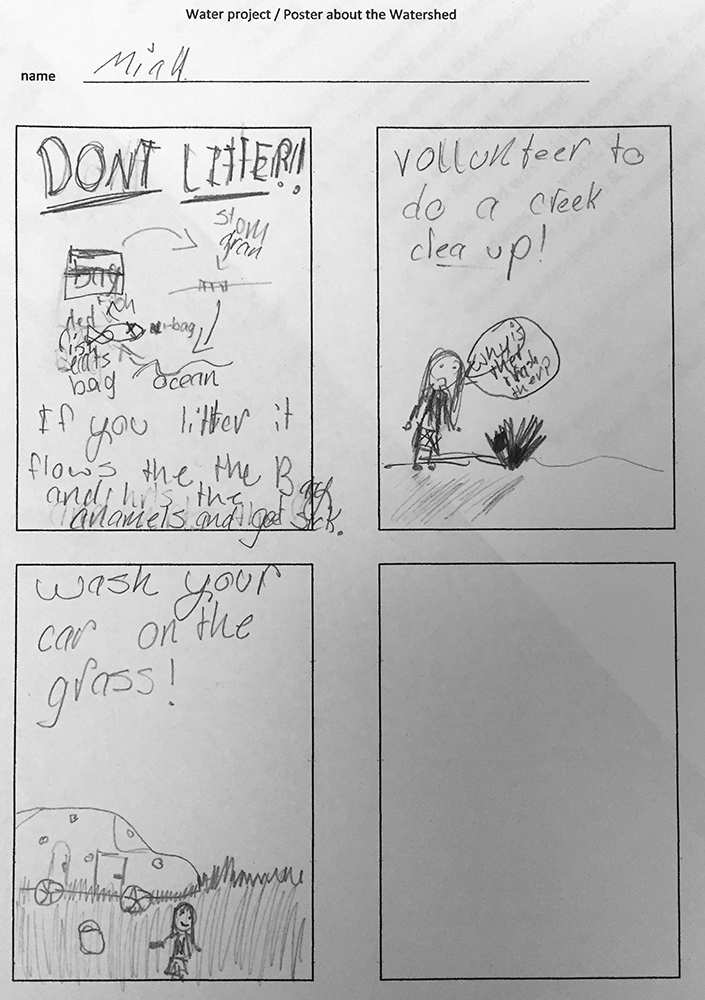 Water project / Poster about the Watershed
name Miah
DONT LITTER!!
storm
dran
bag
fish
ded
fish
eats
bag
bag
ocean
If you litter it
flows the the Bay
and hrts the
anamels and get sick.
vollunteer to
do a creek
clea up!
why is
ther
trash
ther?
wash your
car on the
grass!